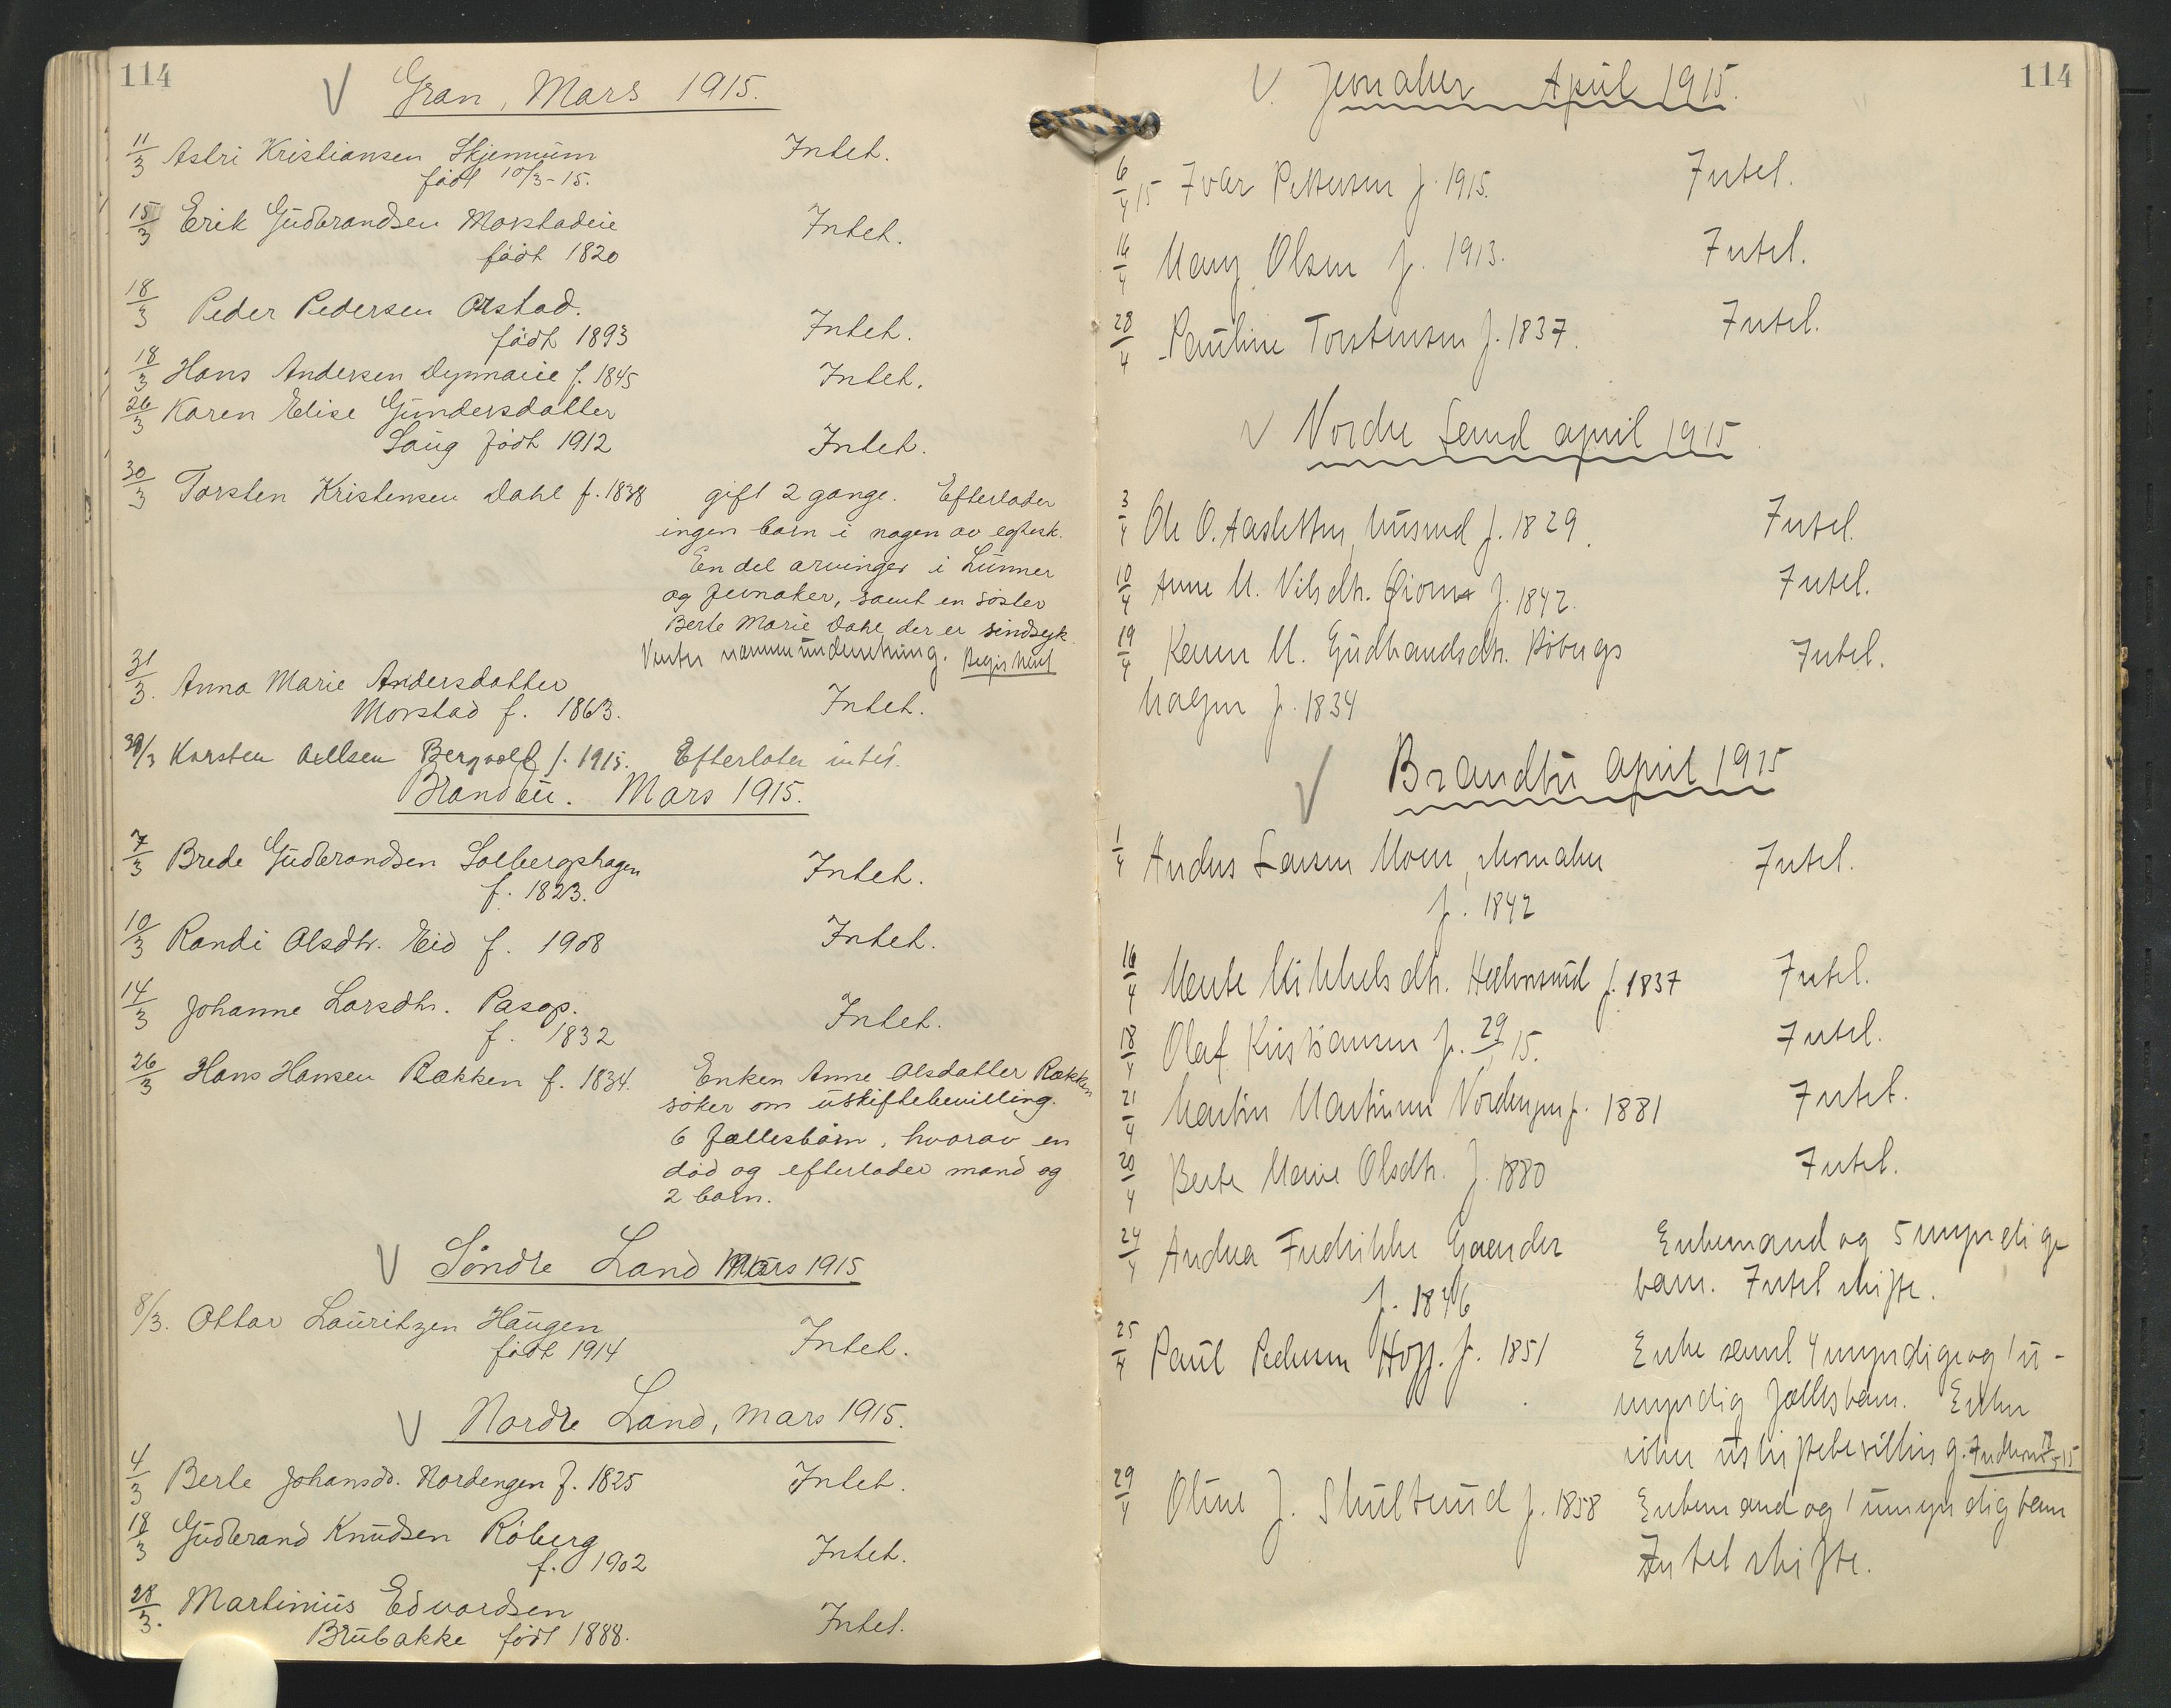 114
V Gran, Mars 1915.
11/3 Astri Kristiansen Skjennum Intet.
født 10/3-15.
15/3 Erik Gudbrandsen Morstadeie Intet.
født 1820
18/3 Peder Pedersen Orstad.
født 1893 Intet.
18/3 Hans Andersen Dynnaeie f. 1845 Intet.
26/3 Karen Elise Gundersdatter
Saug født 1912 Intet.
30/3 Torsten Kristensen Dahl f. 1838 gift 2 gange. Efterlader
ingen barn i nogen av egtesk.
En del arvinger i Lunner
og Jevnaker, samt en søster
Berte Marie Dahl der er sindsyk.
Venter nærmere underretning.
31/3. Anna Marie Andersdatter
Morstad f. 1863. Intet.
30/3 Karsten Adlsen Bergvoll f. 1915. Efterlater intet.
Brandbu. Mars 1915.
7/3 Brede Gudbrandsen Solbergshagen
f. 1823. Intet.
10/3 Randi Olsdtr. Eid f. 1908 Intet.
14/3 Johanne Larsdtr. Pasop.
f. 1832 Intet.
26/3 Hans Hansen Rækken f. 1834. Enken Anne Olsdatter Rækken
søker om uskiftebevilling.
6 fællesbørn, hvorav en
død og efterlader mand og
2 barn.
V Søndre Land Mars 1915
8/3. Ottar Lauritzen Haugen
født 1914 Intet.
V Nordre Land, mars 1915.
4/3 Berte Johansd. Nordengen f. 1825 Intet.
18/3 Gudbrand Knudsen Røberg
f. 1902 Intet.
28/3. Martinius Edvardsen
Brubakke født 1888. Intet.
114
V. Jevnaker April 1915.
6/4 15 Ivar Pettersen f. 1915. Intet.
16/4 Mary Olsen f. 1913. Intet.
28/4 Pauline Torstensen f. 1837. Intet.
V Nordre Land april 1915
3/4 Ole O. Aasletten, husmd f. 1829. Intet.
10/4 Anne M. Nilsdtr. f. 1842. Intet.
19/4 Karen M. Gudbrandsdtr. Røbergs Intet.
hagen f. 1834
V Brandbu april 1915
1/4 Anders Larsen Moen, skomaker Intet.
f. 1842
16/4 Marte Mikkelsdtr. f. 1837 Intet.
18/4 Olaf Kristiansen f. 29/1 15. Intet.
21/4 Martin Martinsen Nordengen f. 1881 Intet.
20/4 Berte Marie Olsdtr. f. 1880 Intet.
24/4 Andrea Fredrikke Enkemand og 5 myndige
f. 1846 barn. Intet skifte.
25/4 Paul Pedersen Hopp. f. 1851 Enke samt 4 myndige og 1 u-
myndig fællesbarn. Enken
søker uskiftebevilling.
29/4 Oline J. Skultsrud f. 1858 Enkemand og 1 umyndig barn
Intet skifte.